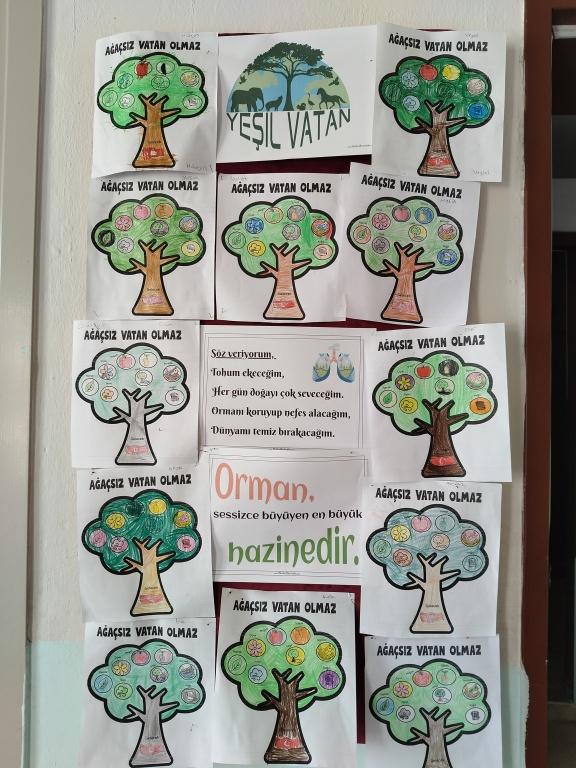 AĞAÇSIZ VATAN OLMAZ
YEŞİL VATAN
AĞAÇSIZ VATAN OLMAZ
AĞAÇSIZ VATAN OLMAZ
AĞAÇSIZ VATAN OLMAZ
AĞAÇSIZ VATAN OLMAZ
AĞAÇSIZ VATAN OLMAZ
Söz veriyorum,
Tohum ekeceğim,
Her gün doğayı çok seveceğim.
Ormanı koruyup nefes alacağım,
Dünyamı temiz bırakacağım.
AĞAÇSIZ VATAN OLMAZ
AĞAÇSIZ VATAN OLMAZ
Orman,
sessizce büyüyen en büyük
hazinedir.
AĞAÇSIZ VATAN OLMAZ
AĞAÇSIZ VATAN OLMAZ
AĞAÇSIZ VATAN OLMAZ
AĞAÇSIZ VATAN OLMAZ